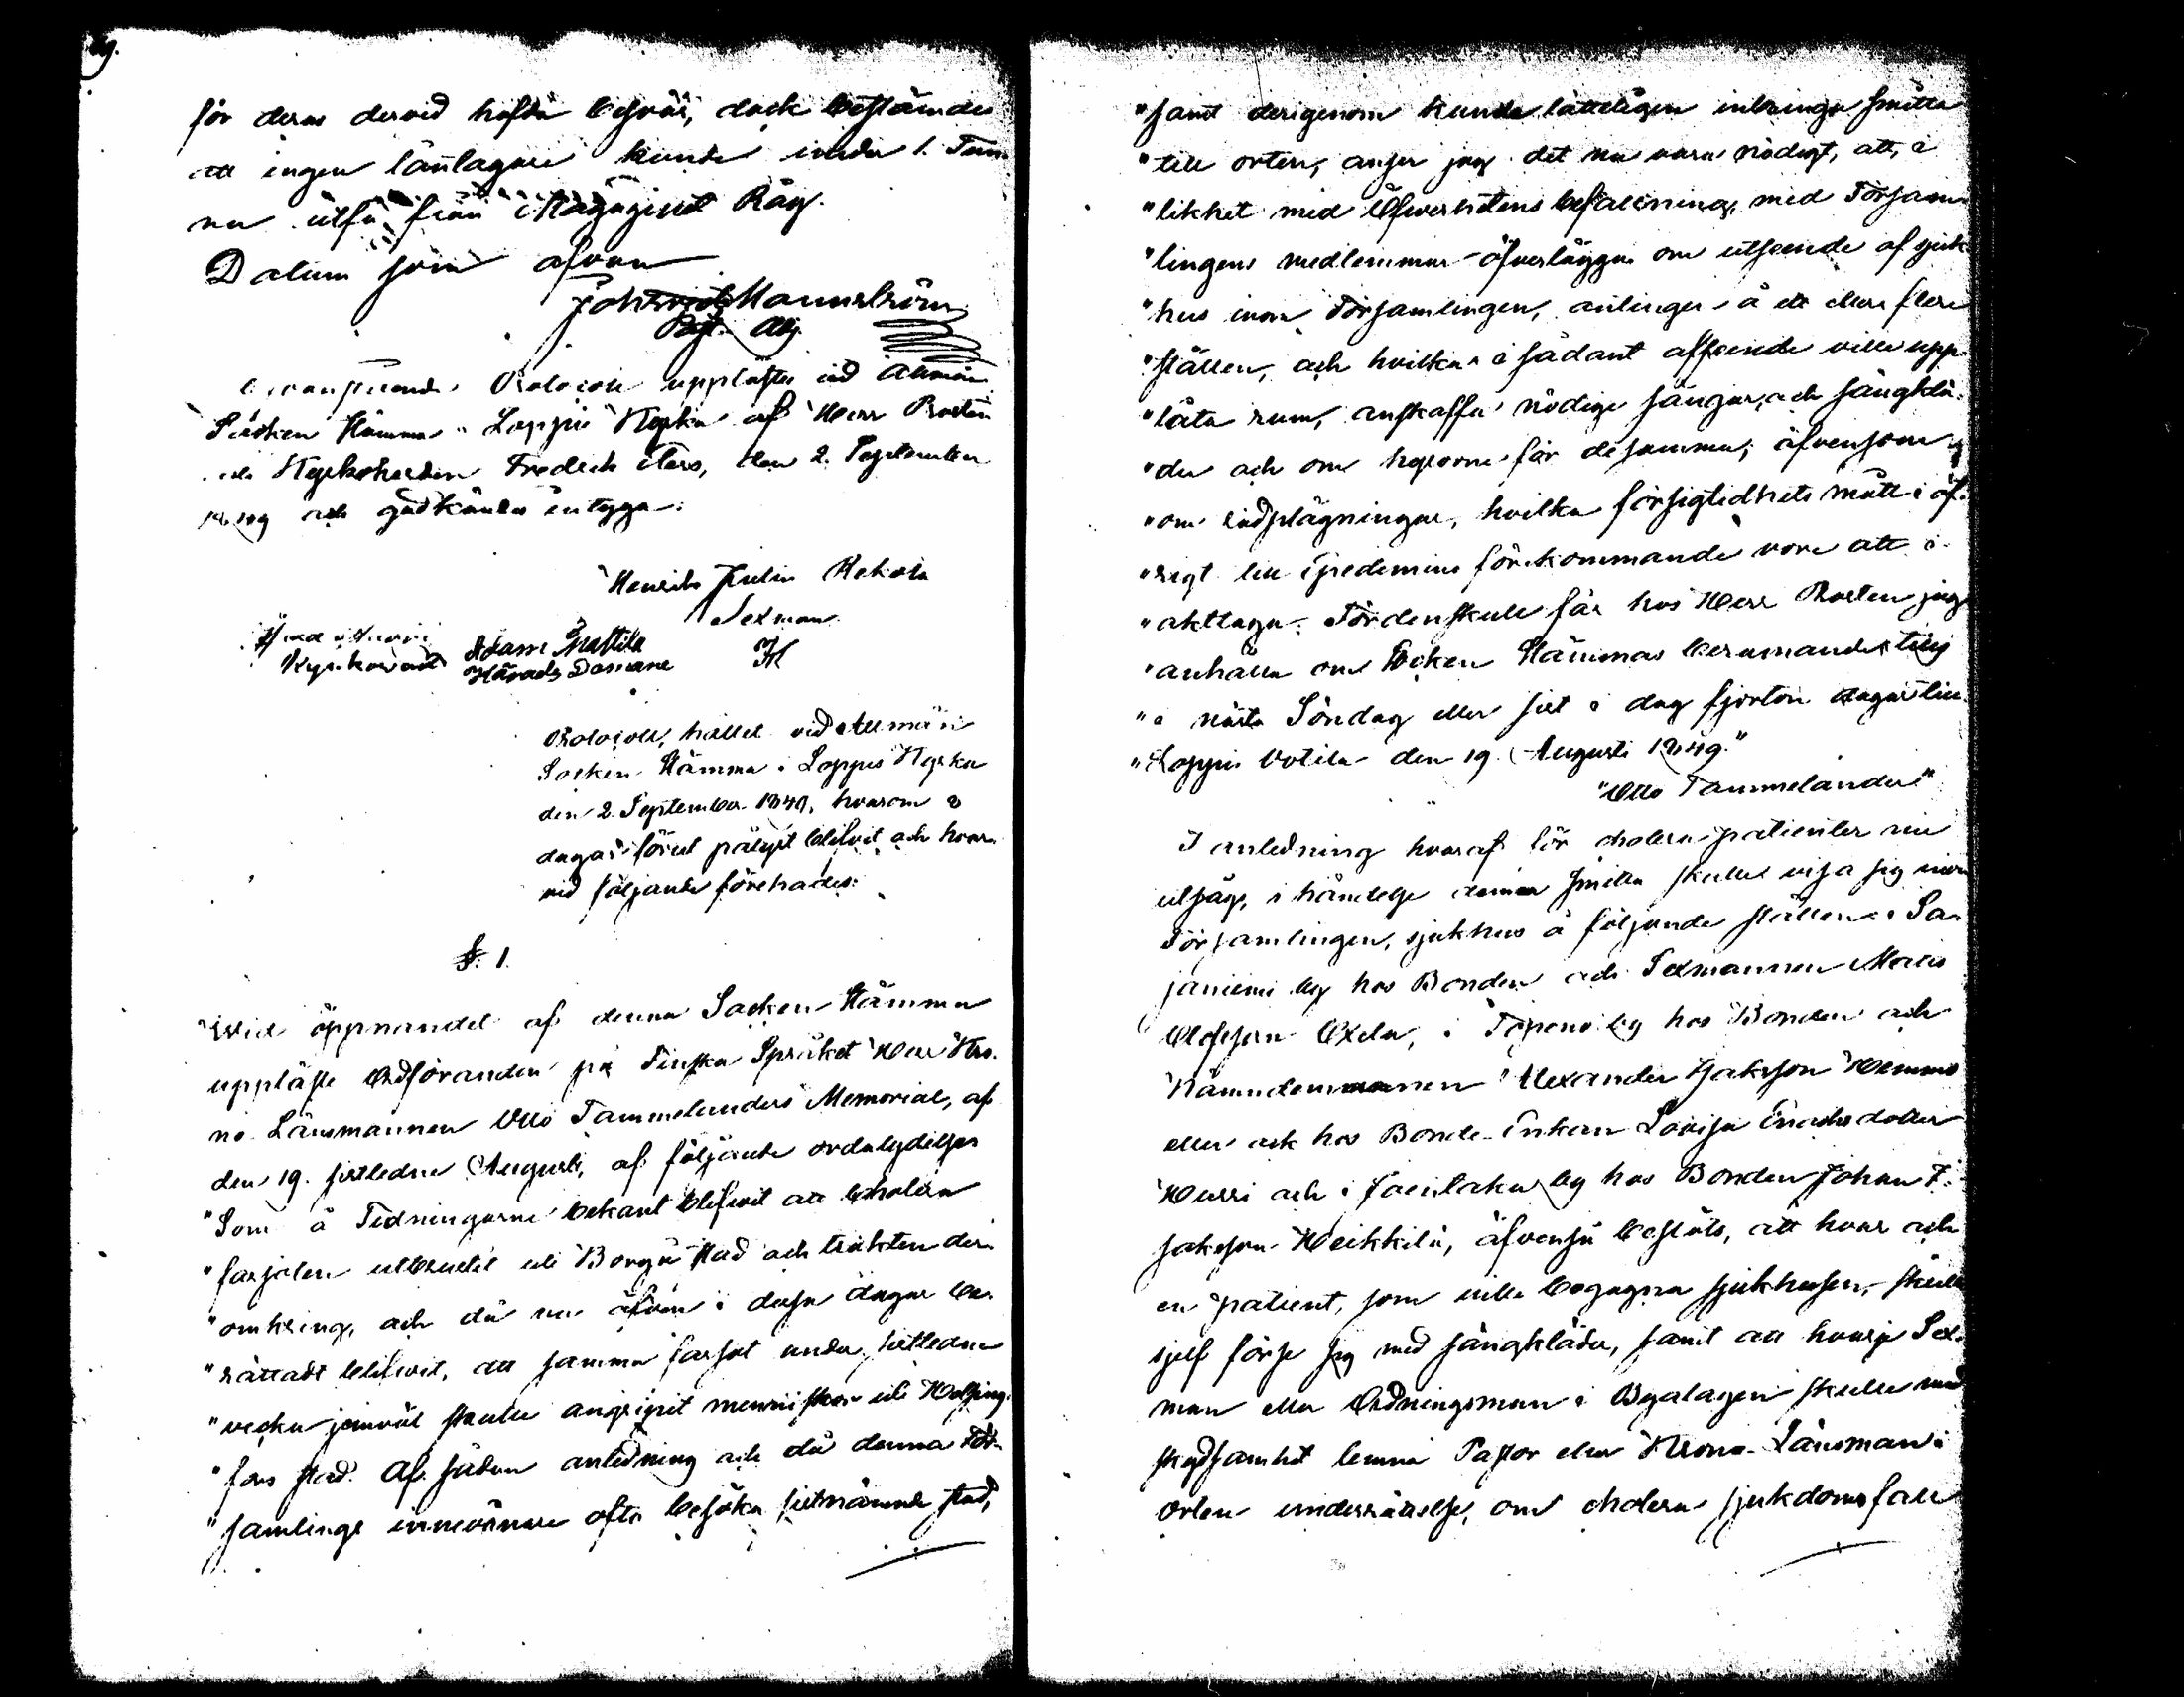 för deras dervid hafda besvär, dock bestämdes
att ingen lånlagare kunde under 1. Tun-
na utfå från Magaginet Råg.
Datum som ofvan
Joh: Mannström
Past. Adj.
Protocoll upplästes vid Allmän
Socken Stämma i Loppis Kyrka af Herr Prosten
och Kyrkoherden Fredrik 2. September
1849 och godkändes intyga:
Henrik Julin Rekola
Sexman
Adam Mattila
Kyrkovärd Härads Domare
Protocoll, hållet vid Allmän
Socken Stämma i Loppis Kyrka
den 2. September 1849, hvarom 8
dagar förut pålyst blifvit och hvar-
vid följande förehades:
§. 1.
Wid öppnandet af denna Socken Stämma
uppläste Ordföranden på Finska Språket Herr Kro-
no Länsmannen Otto Tammelanders Memorial, af
den 19. sistledne Augusti, af följande ordalydelse:
"Som å Tidningarne bekant blifvit att Cholera
"farsoten utbrutit uti Borgå Stad och trakten der-
"omkring, och då nu äfven i dessa dagar be-
"rättadt blifvit, att samma farsot under sistledne
"vecka jemväl skulle angripit menniskor uti Helsing-
"fors stad. Af sådan anledning och då denna För-
"samlings innevånare ofta besöka sistnämnde stad,
"samt derigenom kunde lätteligen inbringa smitta
"till orten, anser jag det nu vara nödigt, att, i
"likhet med Öfverhetens befallning, med Försam-
"lingens medlemmar öfverlägga om utseende af sjuk-
"hus inom Församlingen, antingen å ett eller flere
"ställen, och hvilka i sådant afseende ville upp-
"låta rum, anskaffa nödige sängar, och sängklä-
"der och om hyrorne för desamma; äfvensom
"om rådplägningar, hvilka försigtidhets mått i öf-
"rigt till Epedemins förekommande vore att i-
"akttaga. Fördenskull får hos Herr Prosten jag
"anhålla om Socken Stämmas beramande till
"nästa Söndag eller sist i dag fjorton dagar till.
"Loppis Votila den 19. Augusti 1849."
"Otto Tammelander"
I anledning hvaraf för cholera patienter nu
utsågs, i händelse denna smitta skulle visa sig inom
Församlingen, sjukhus å följande ställen: i Sa-
janiemi by hos Bonden och Sexmannen Matts
Olofsson Oxela, i Topeno by hos Bonden och
Nämndemannen Alexander Jakson Hemmo
eller ock hos Bonde Enkan Lovisa Enochsdotter
Hurri och i Joenlaka by hos Bonden Johan I-
saksson Heikkilä, äfvenså beslöts, att hvar och
en patient, som ville begagna sjukhusen, skulle
sjelf förse sig med sängkläder, samt att hvarje Sex-
man eller Ordningsman i Byalagen skulle med
skyndsamhet lemna Pastor eller Krono-Länsman i
orten underrättelse, om cholera sjukdomsfall